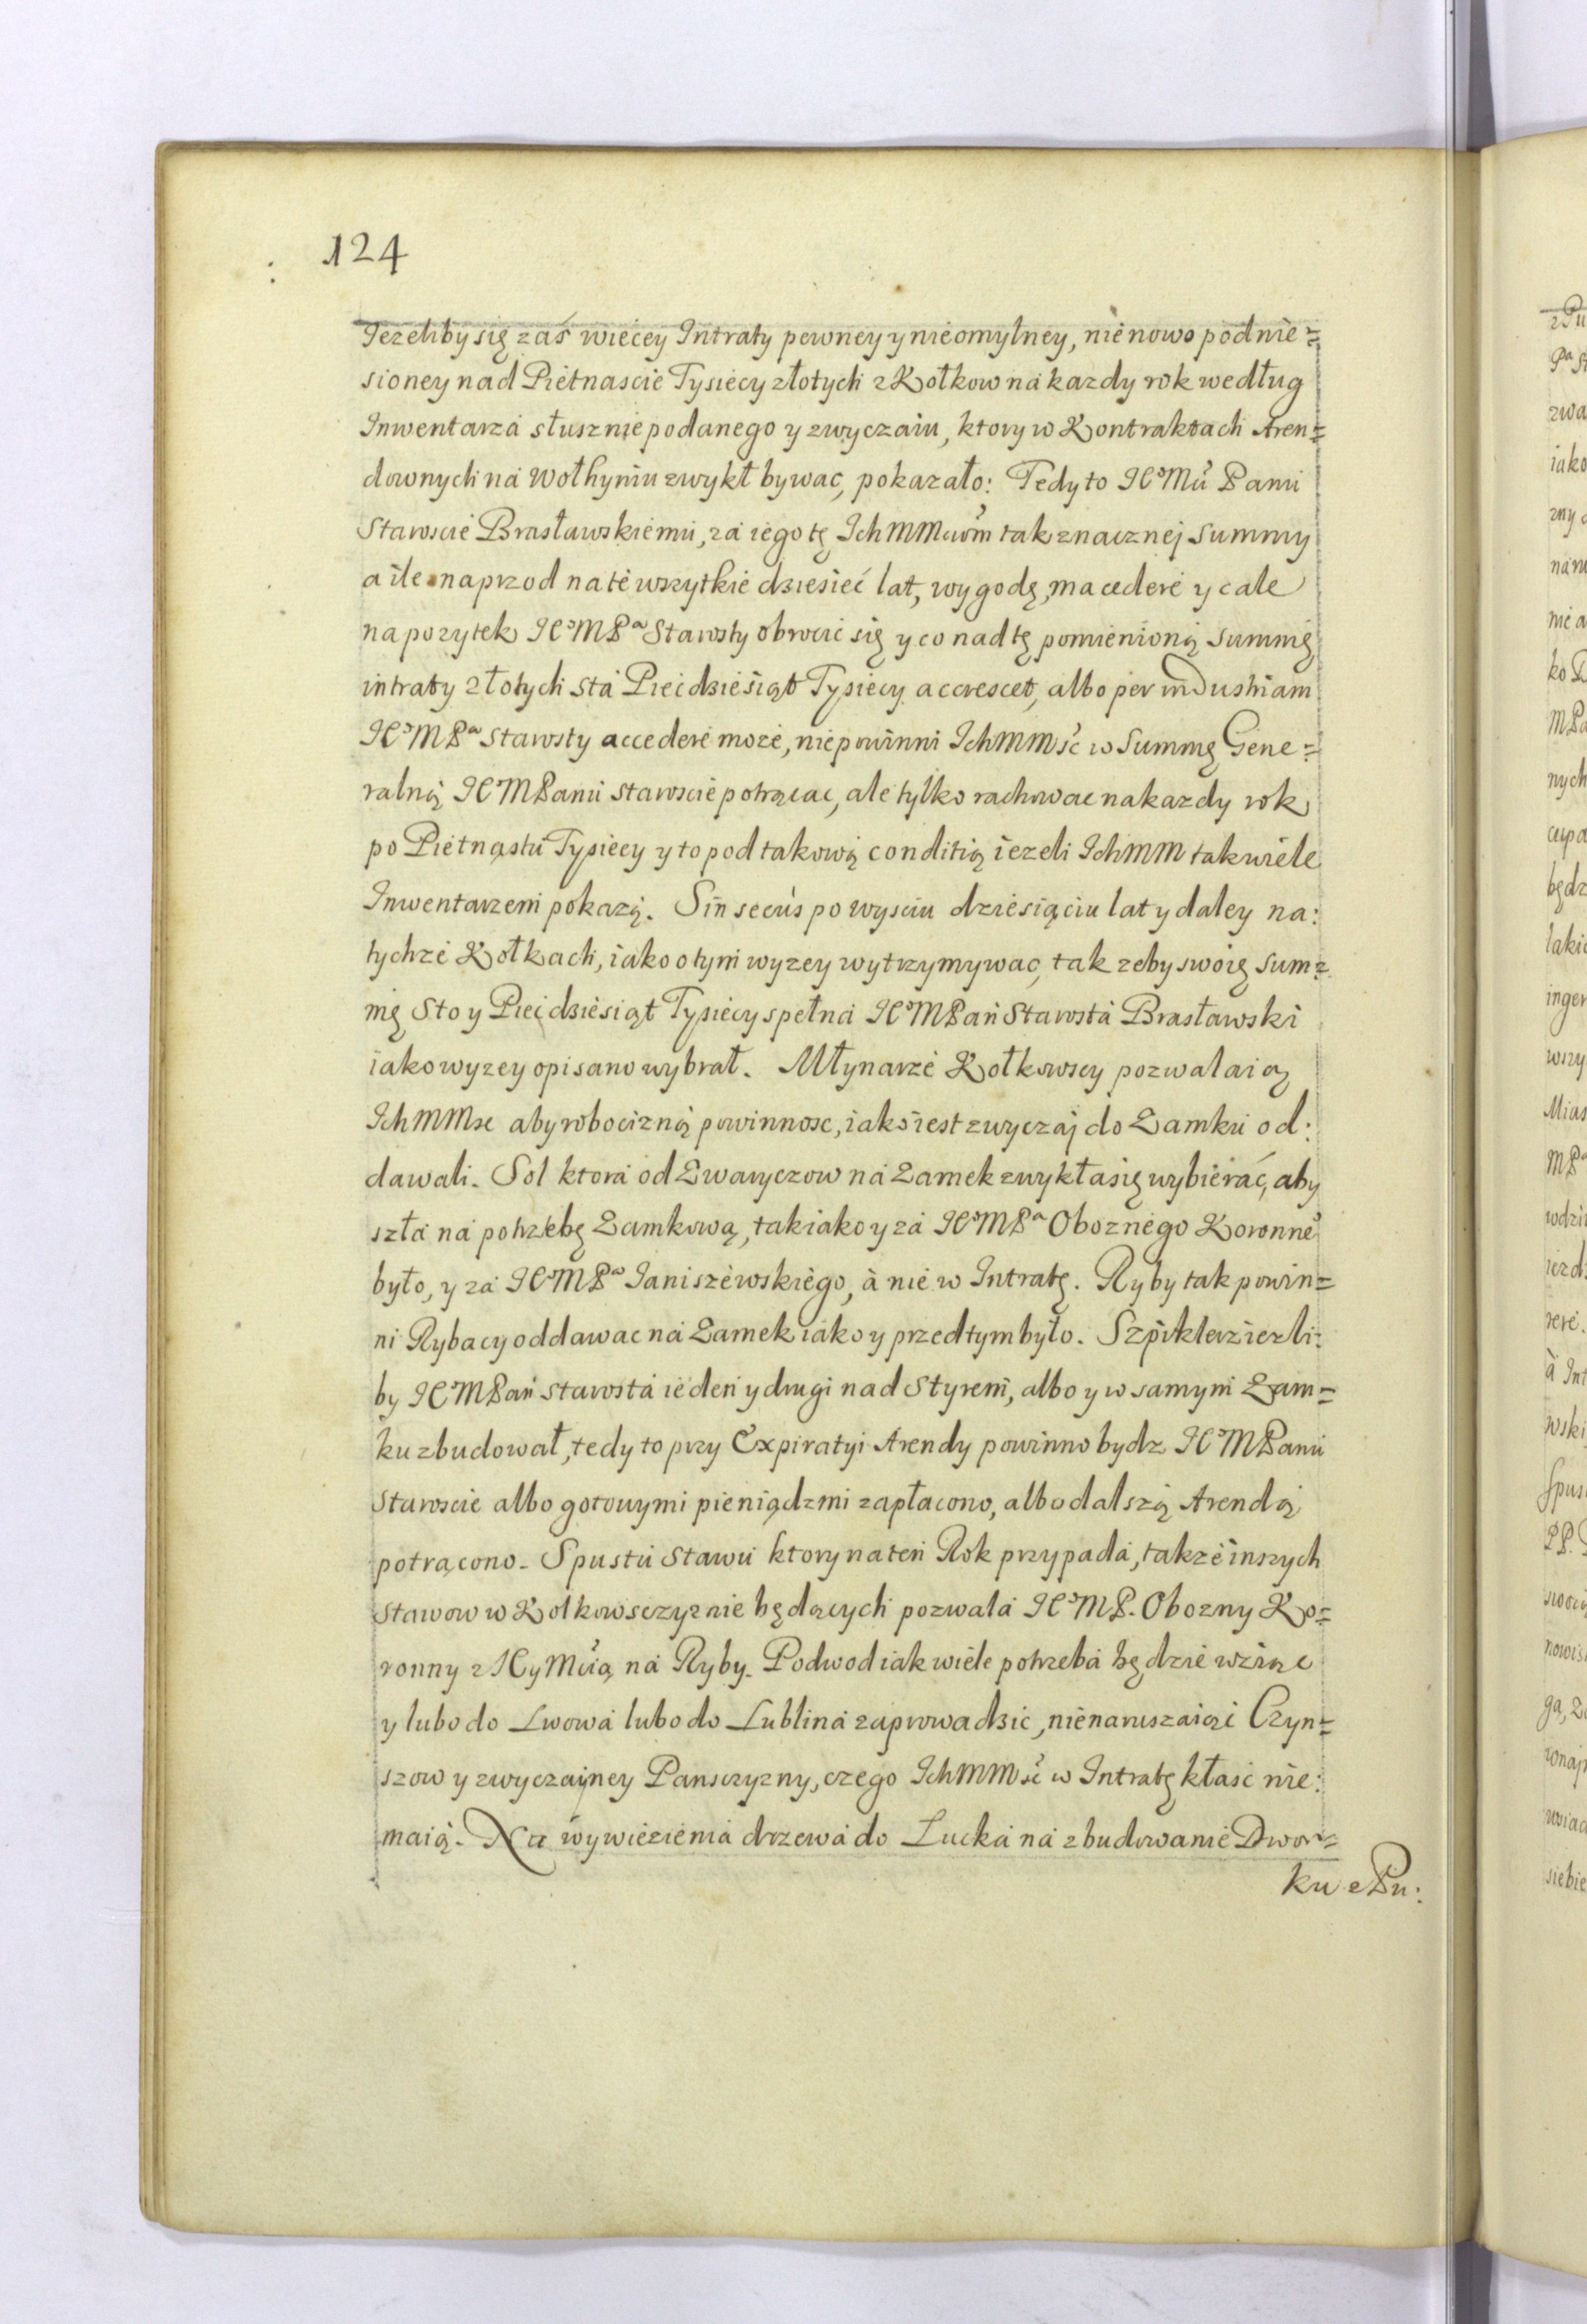 124
Jezeliby się zaś wiecey Intraty pewney y nieomylney, nie nowo podnie=
sioney nad Piętnascie Tysięcy złotych z Kołkow na kazdy rok według
Inwentarza słusznie podanego y zwyczaiu, ktory w Kontraktach Aren=
downych na Wołhyniu zwykł bywac, pokazało: Tedy to JCoMu Panu
Staroscie Brasławskiemu, za iego tę IchMMciom tak znacznej Summy
a ile naprzod na te wszytkie dziesieć lat, wygodę, ma cedere y cale
na pozytek JCoMPa Starosty obrocic się y co nad tę pomienioną Summę
intraty złotych sta Piecdziesiąt Tysiecy accrescet, albo per industriam
JCoMPa Starosty accedere może, niepowinni IchMMść w Summę Gene=
ralną JCMPanu Staroscie potrącac, ale tylko rachowac na kazdy rok
po Piętnastu Tysiecy y to pod takową conditią iezeli IchMM tak wiele
Inwentarzem pokazą. Sin secus po wysciu dziesiąciu lat y daley na:
tychze Kołkach, iako o tym wyzey wytrzymywac, tak zeby swoię Sum=
mę Sto y Piecdziesiąt Tysiecy spełna JCoMPan Starosta Brasławski
iako wyzey opisano wybrał. Młynarze Kołkowscy pozwalaią
IchMMsc aby robocizną powinnosc, iako iest zwyczaj do Zamku od:
dawali. Sol ktora od Zwaryczow na Zamek zwykła się wybierać, aby
szła na potrzebę Zamkową, tak iako y za JCoMPa Oboznego Koronneo
było, y za JCoMPa Janiszewskiego, à nie w Intratę. Ryby tak powin=
ni Rybacy oddawac na Zamek iako y przedtym było. Szpiklerz iezli:
by JCMPan Starosta ieden y drugi nad Styrem, albo y w samym Zam=
ku zbudował, tedy to przy Expiratyi Arendy powinno bydz JCoMPanu
Staroscie albo gotowymi pieniądzmi zapłacono, albo dalszą Arendą
potrącono. Spustu Stawu ktory na ten Rok przypada, takze inszych
Stawow w Kołkowsczyznie będących pozwala JCoMP. Obozny Ko=
ronny z JCyMcią na Ryby. Podwod iak wiele potrzeba będzie wziąc
y lubo do Lwowa lubo do Lublina zaprowadzic, nienaruszaiąc Czyn=
szow y zwyczayney Pansczyzny, czego IchMMść w Intratę kłasć nie:
maią. Na wywiezienia drzewa do Lucka na zbudowanie Dwor=
ku z Pu: